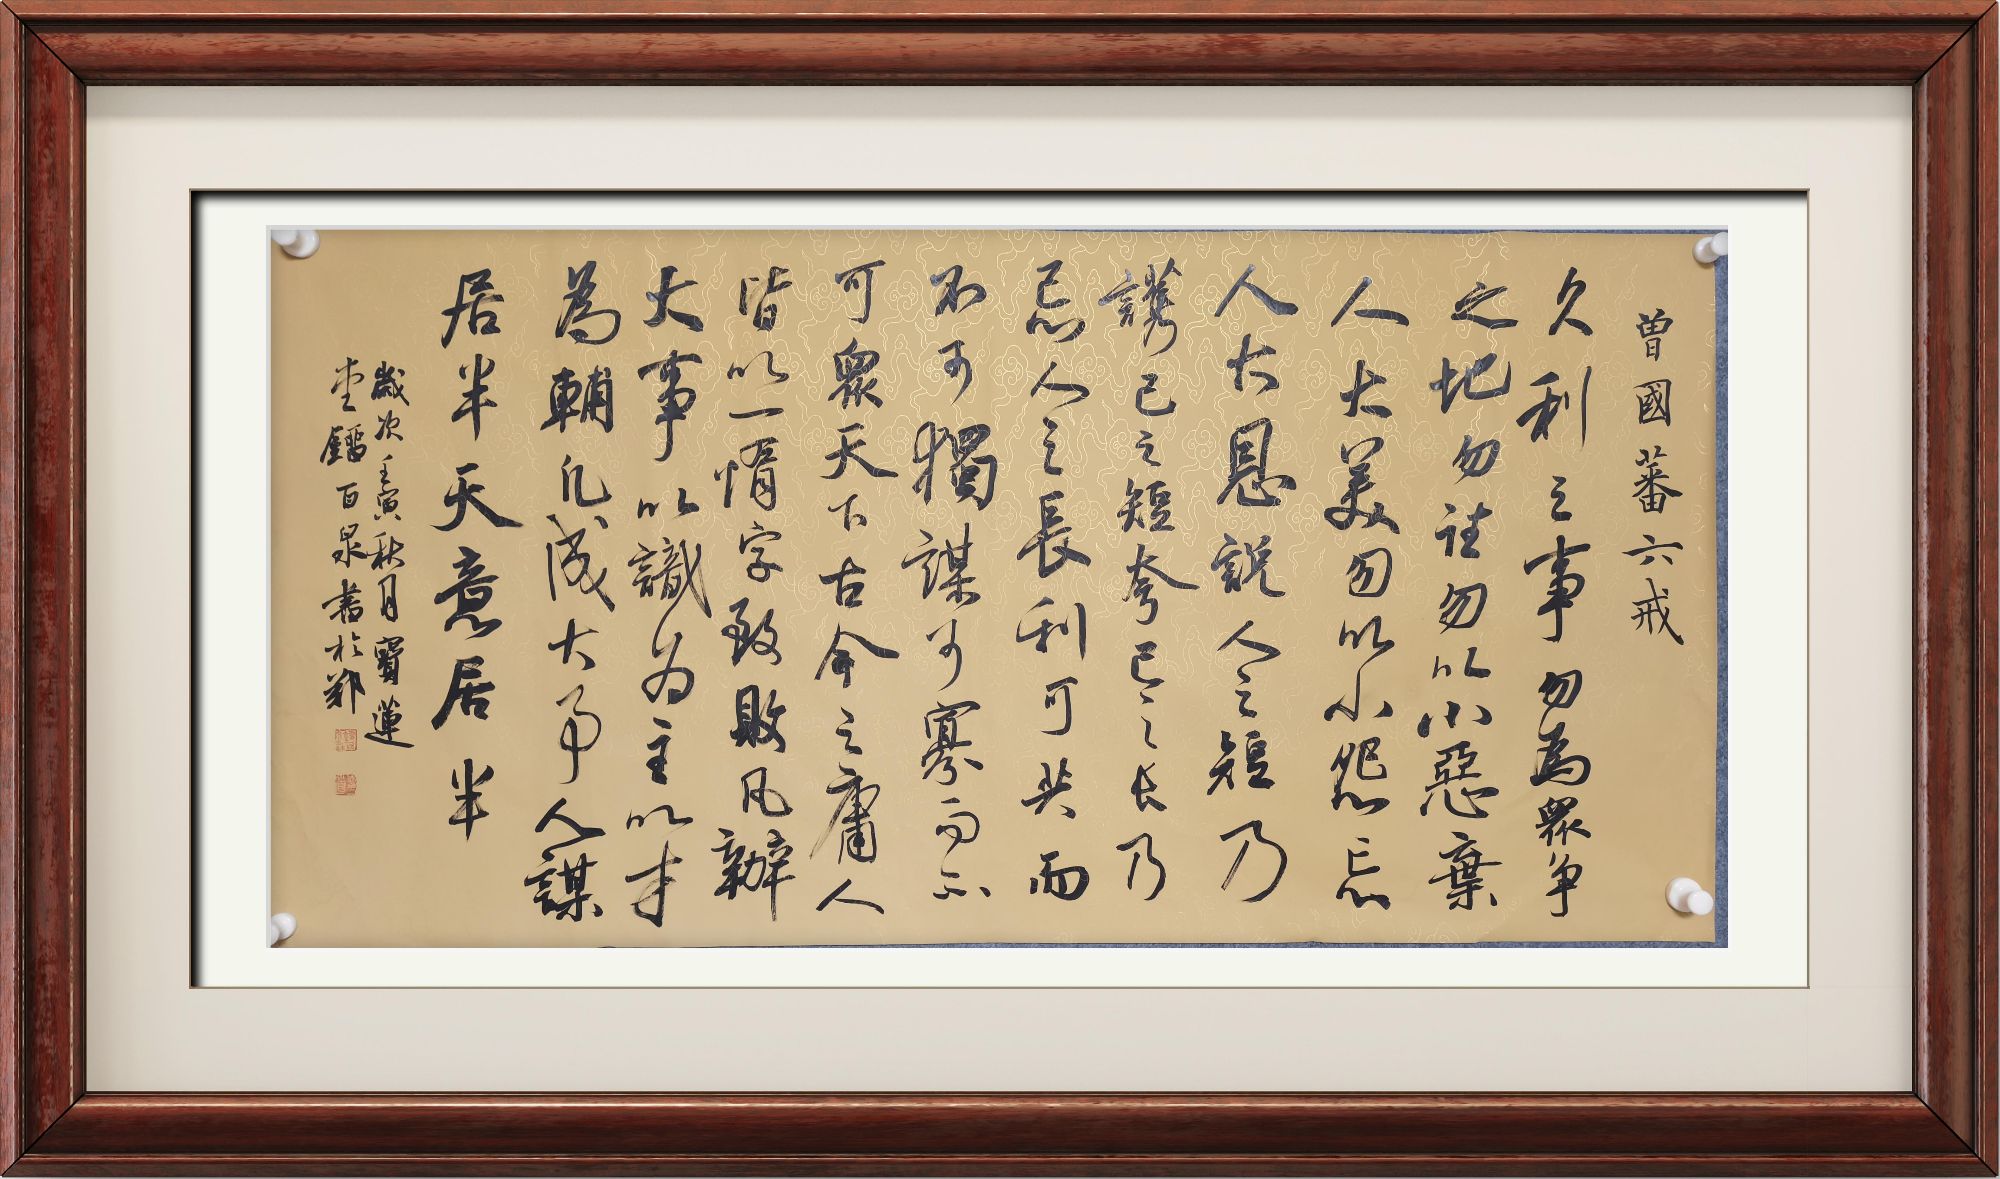 曾國蕃六戒
久利之事勿為眾争
之地勿往勿以小惡棄
人大美勿以小怨忘
人大恩説人之短乃
護己之短夸己之长乃
忌人之長利可共而
不可獨謀可寡而不
可眾天下古今之庸人
皆以一惰字致敗凡辦
大事以識为主以才
為輔凡成大事人謀
居半天意居半
歲次壬寅秋月寶蓮
堂鎦百泉書於鄭